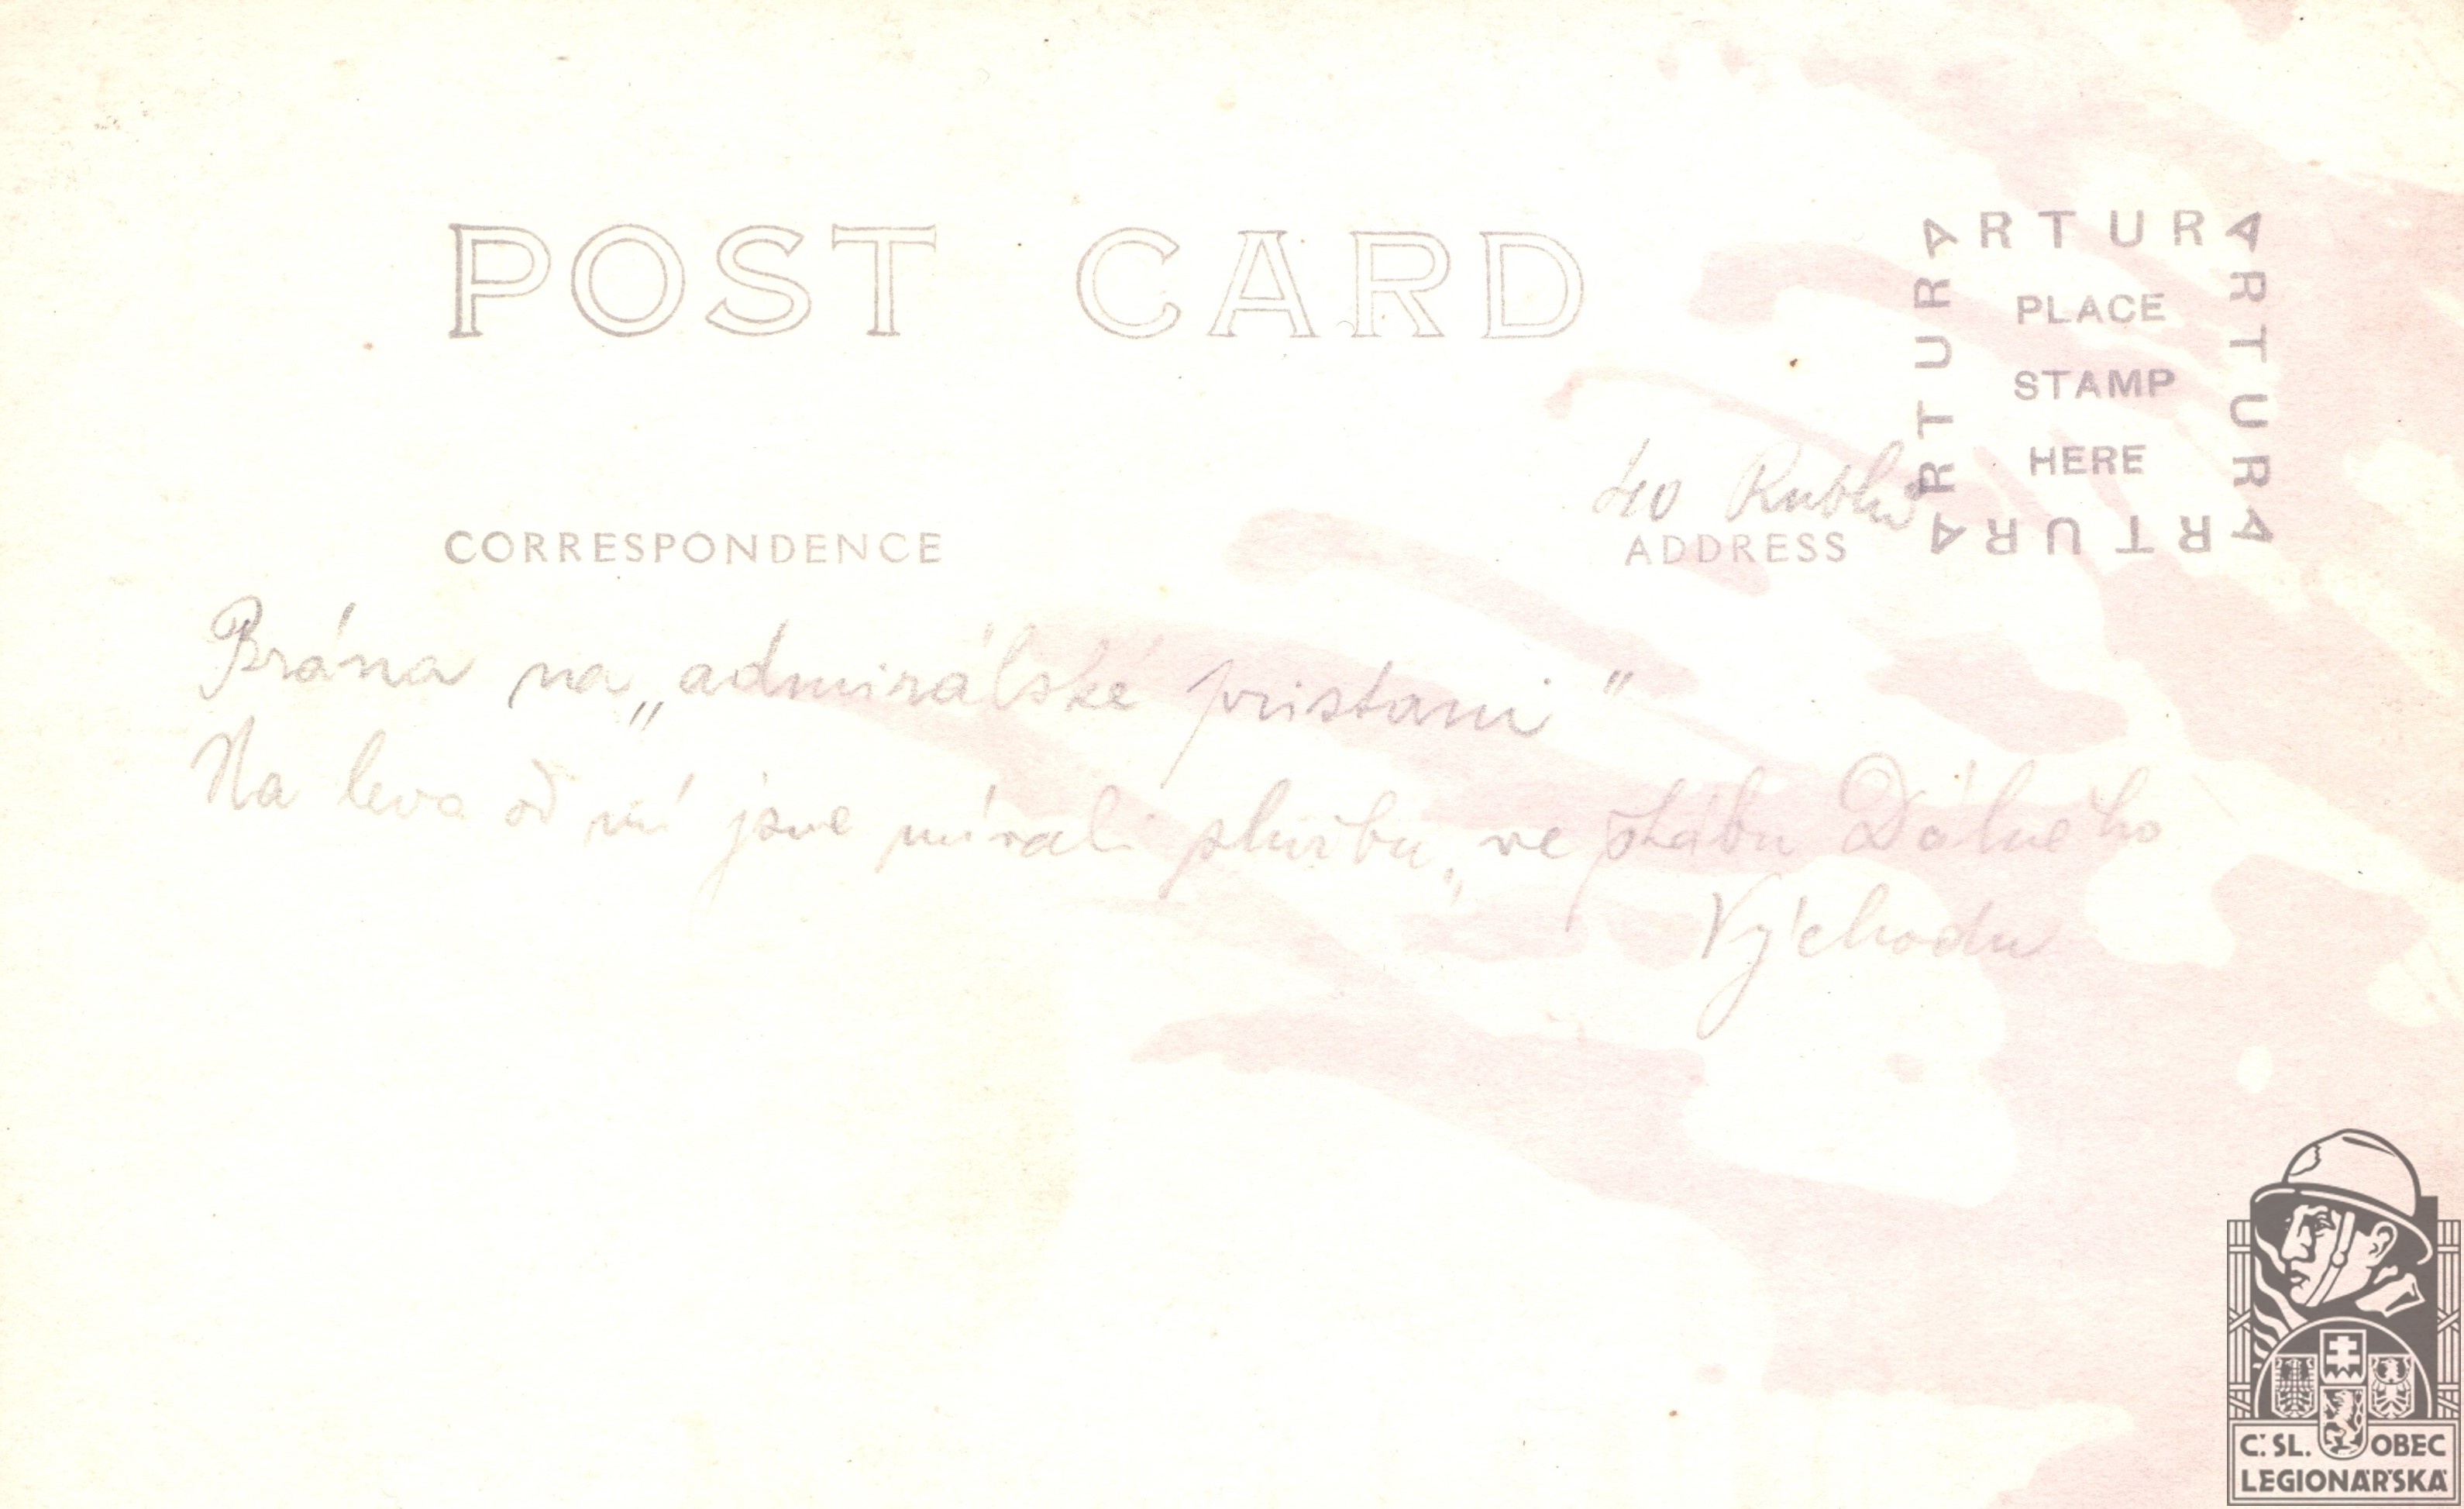 POST CARD
ARTURA
ARTURA
ARTURA
ARTURA
PLACE
STAMP
HERE
CORRESPONDENCE
ADDRESS
Brána na „admirálské pristani"
Na leva od ní jsme mívali službu „ve štábu Dálného
Východu
Č. SL. OBEC
LEGIONÁŘSKÁ